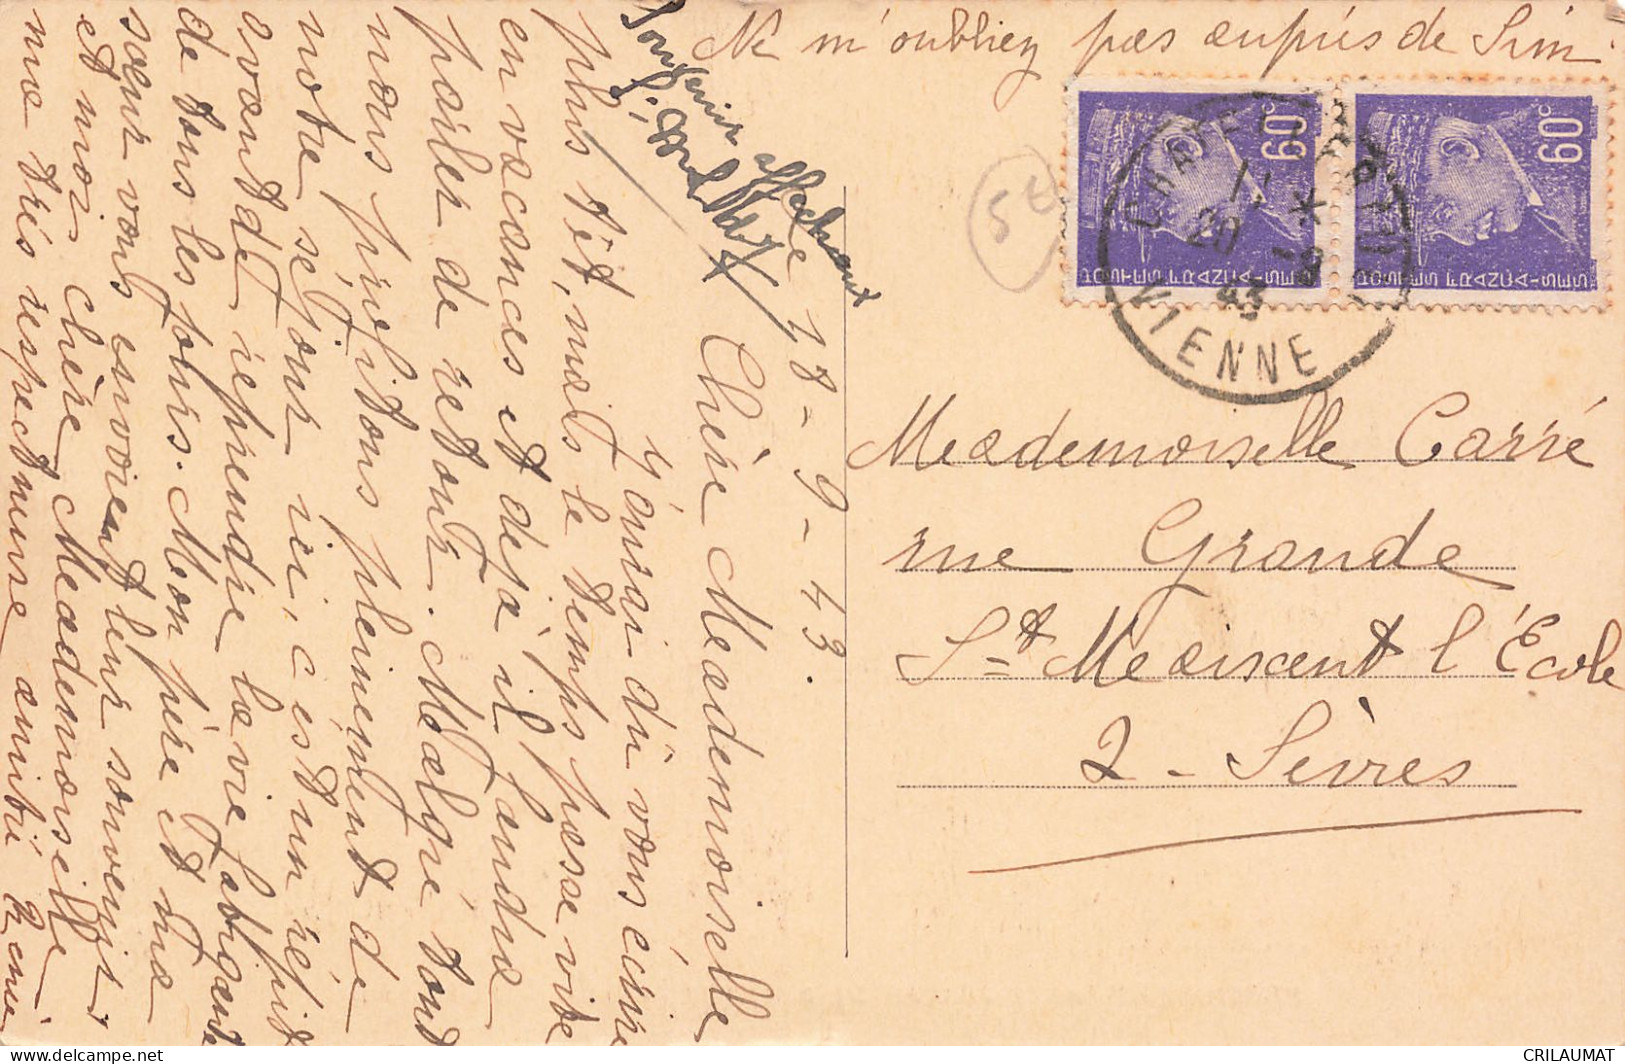 Ne m'oubliez pas auprès de Sim.
Le 18-9-43.
Chère Mademoiselle
J'aurai dû vous écrire
plus tôt, mais le temps passe vite
en vacances et déjà il faudra
parler de retour. Malgré tout
nous profitons pleinement de
notre séjour ici, c'est un répit
avant de reprendre la vie fatigante
de tous les jours. Mon père et ma
soeur vous envoient leur souvenir
et moi, chère Mademoiselle
ma très respectueuse amitié Renée
Souvenir affectueux
60c
60c
POSTES FRANÇAISES
POSTES FRANÇAISES
20
43
VIENNE
5€
Mademoiselle Carré
rue Grande
St Maixent l'École
2-Sèvres
CRILAUMAT